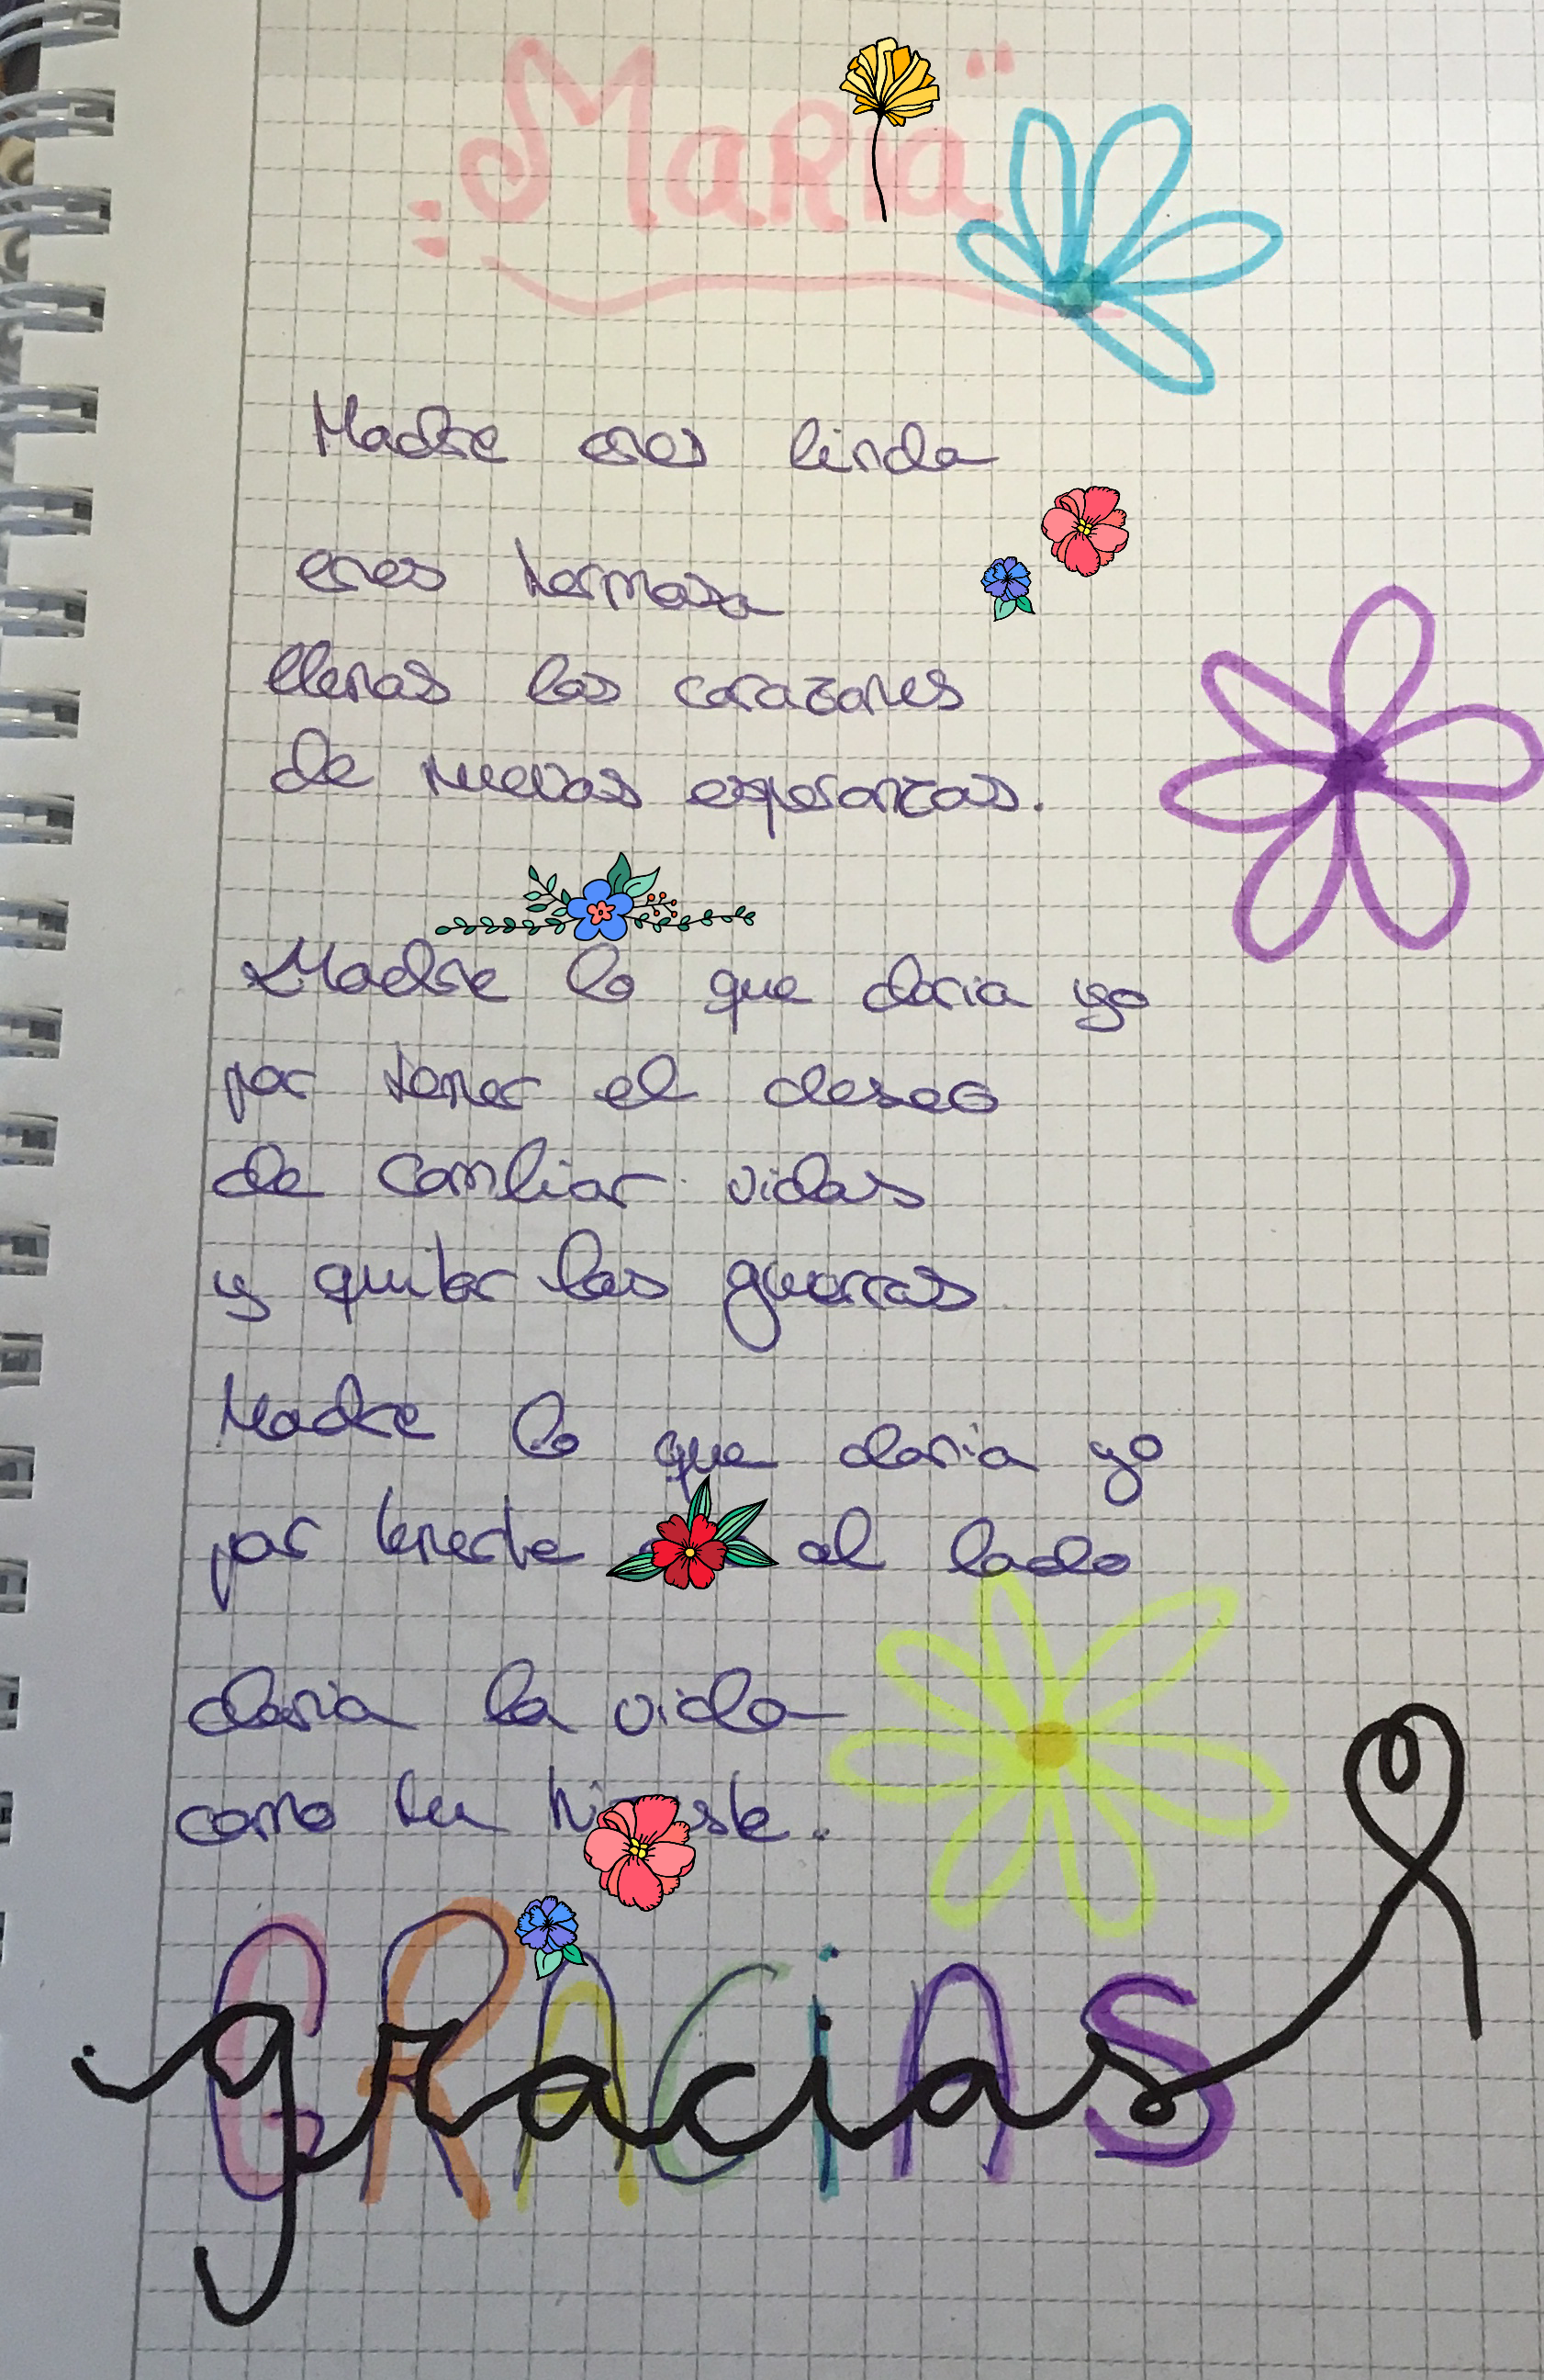 "MaRia"
Madre eres linda
eres hermosa
llenas los corazones
de nuevas esperanzas.
Madre lo que daria yo
por tener el deseo
de cambiar vidas
y quitar las guerras
Madre lo que daria yo
por tenerte al lado
daria la vida
como tu hiciste.
GRACiAS
gracias